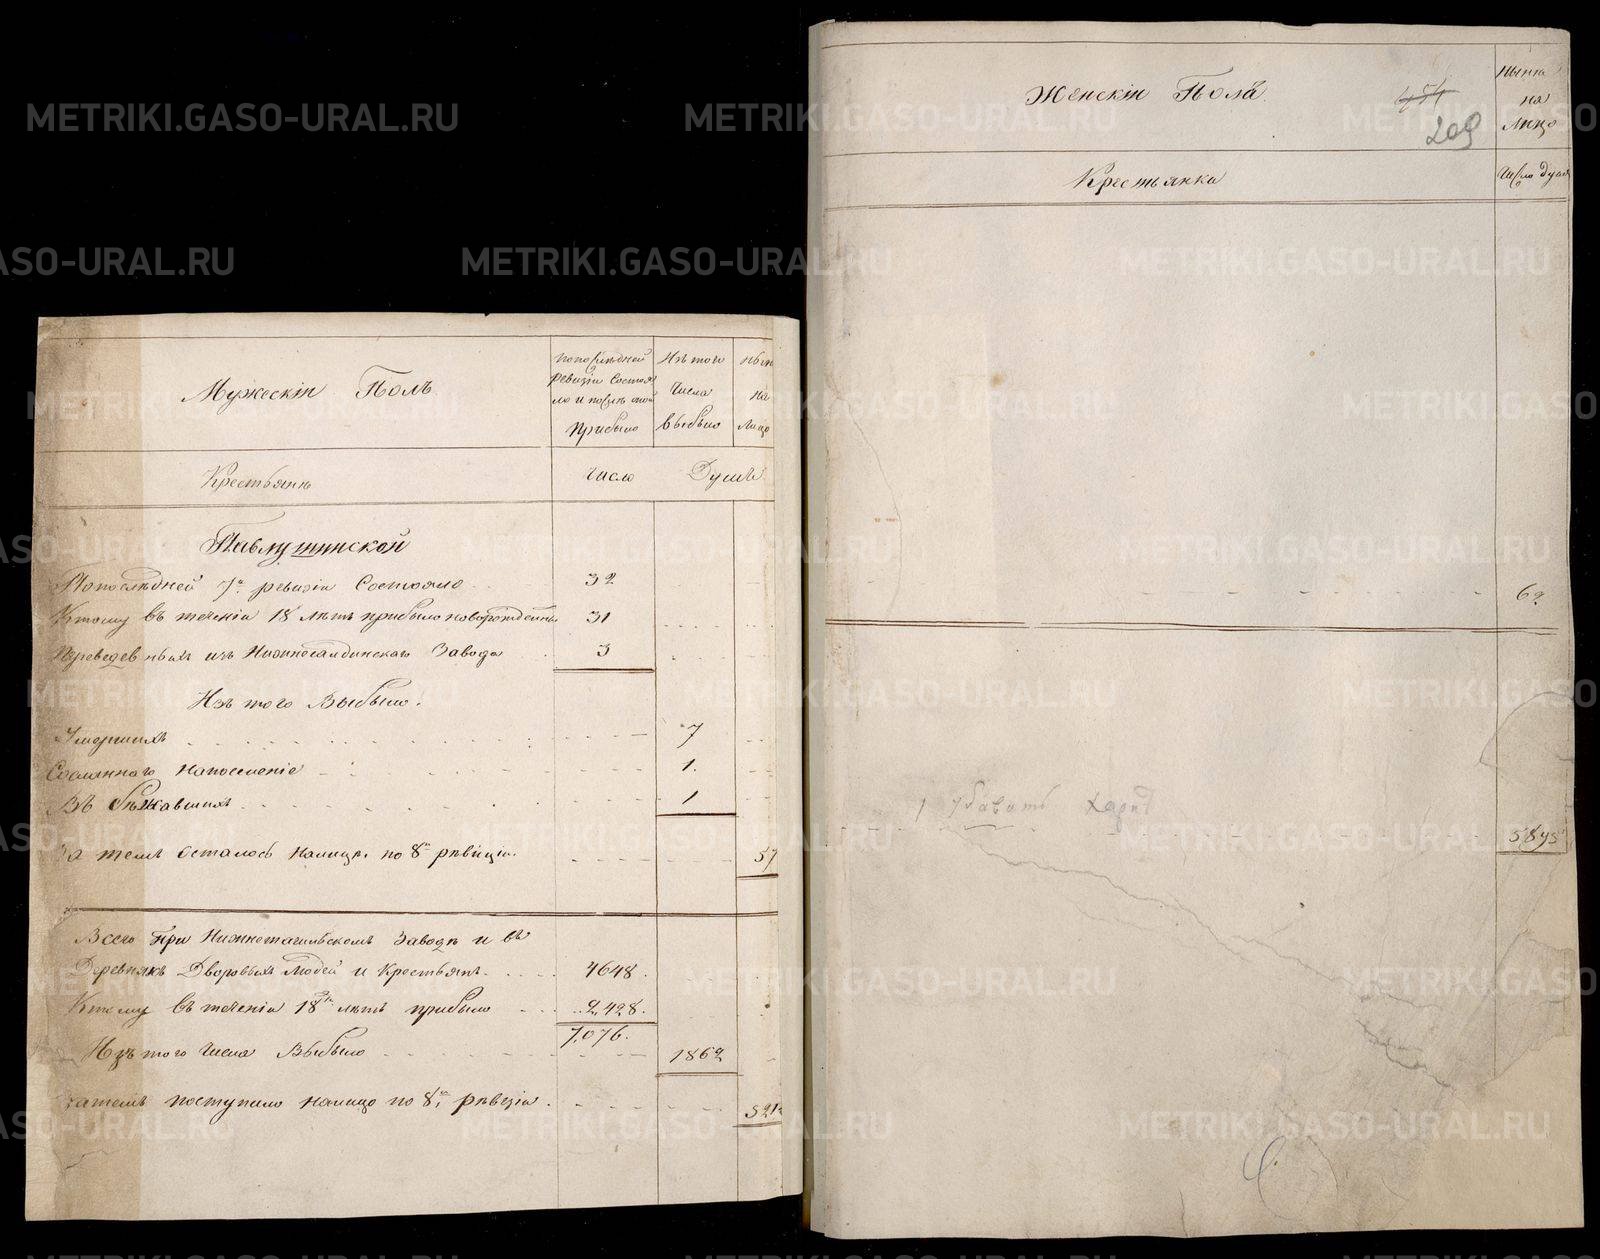 Мужескiй Полъ
попослѣдней
ревизiи состоя
ло и послѣ того
Прибыло
Изъ того
Числа
выбыло
нын
на
Лицо
Крестьянъ
Число
Душъ
Павлушинской
Попослѣдней 7й ревизiи Состояло 32
Ктому въ теченiи 18 лѣтъ прибыло новорожденныхъ 31
Переведенныхъ изъ Нижнесалдинскаго Завода 3
Изъ того Выбыло.
Умершихъ 7
Сосланнаго напоселенiе 1.
Въ бѣжавшихъ 1
За темъ осталось налицо по 8й ревизiи. 57
Всего при Нижнетагильскомъ Заводѣ и въ
Деревняхъ Дворовыхъ Людей и Крестьянъ. 4648.
Ктому въ теченiи 18ти лѣтъ прибыло 2,428.
7,076.
Изъ того Числа Выбыло 1862
Затемъ поступило налицо по 8й ревизiи. 521
Женскiй Полъ
454
209
Ныне
на
Лицо
Крестьянка
Число душъ
62
1 убавить
METRIKI.GASO-URAL.RU